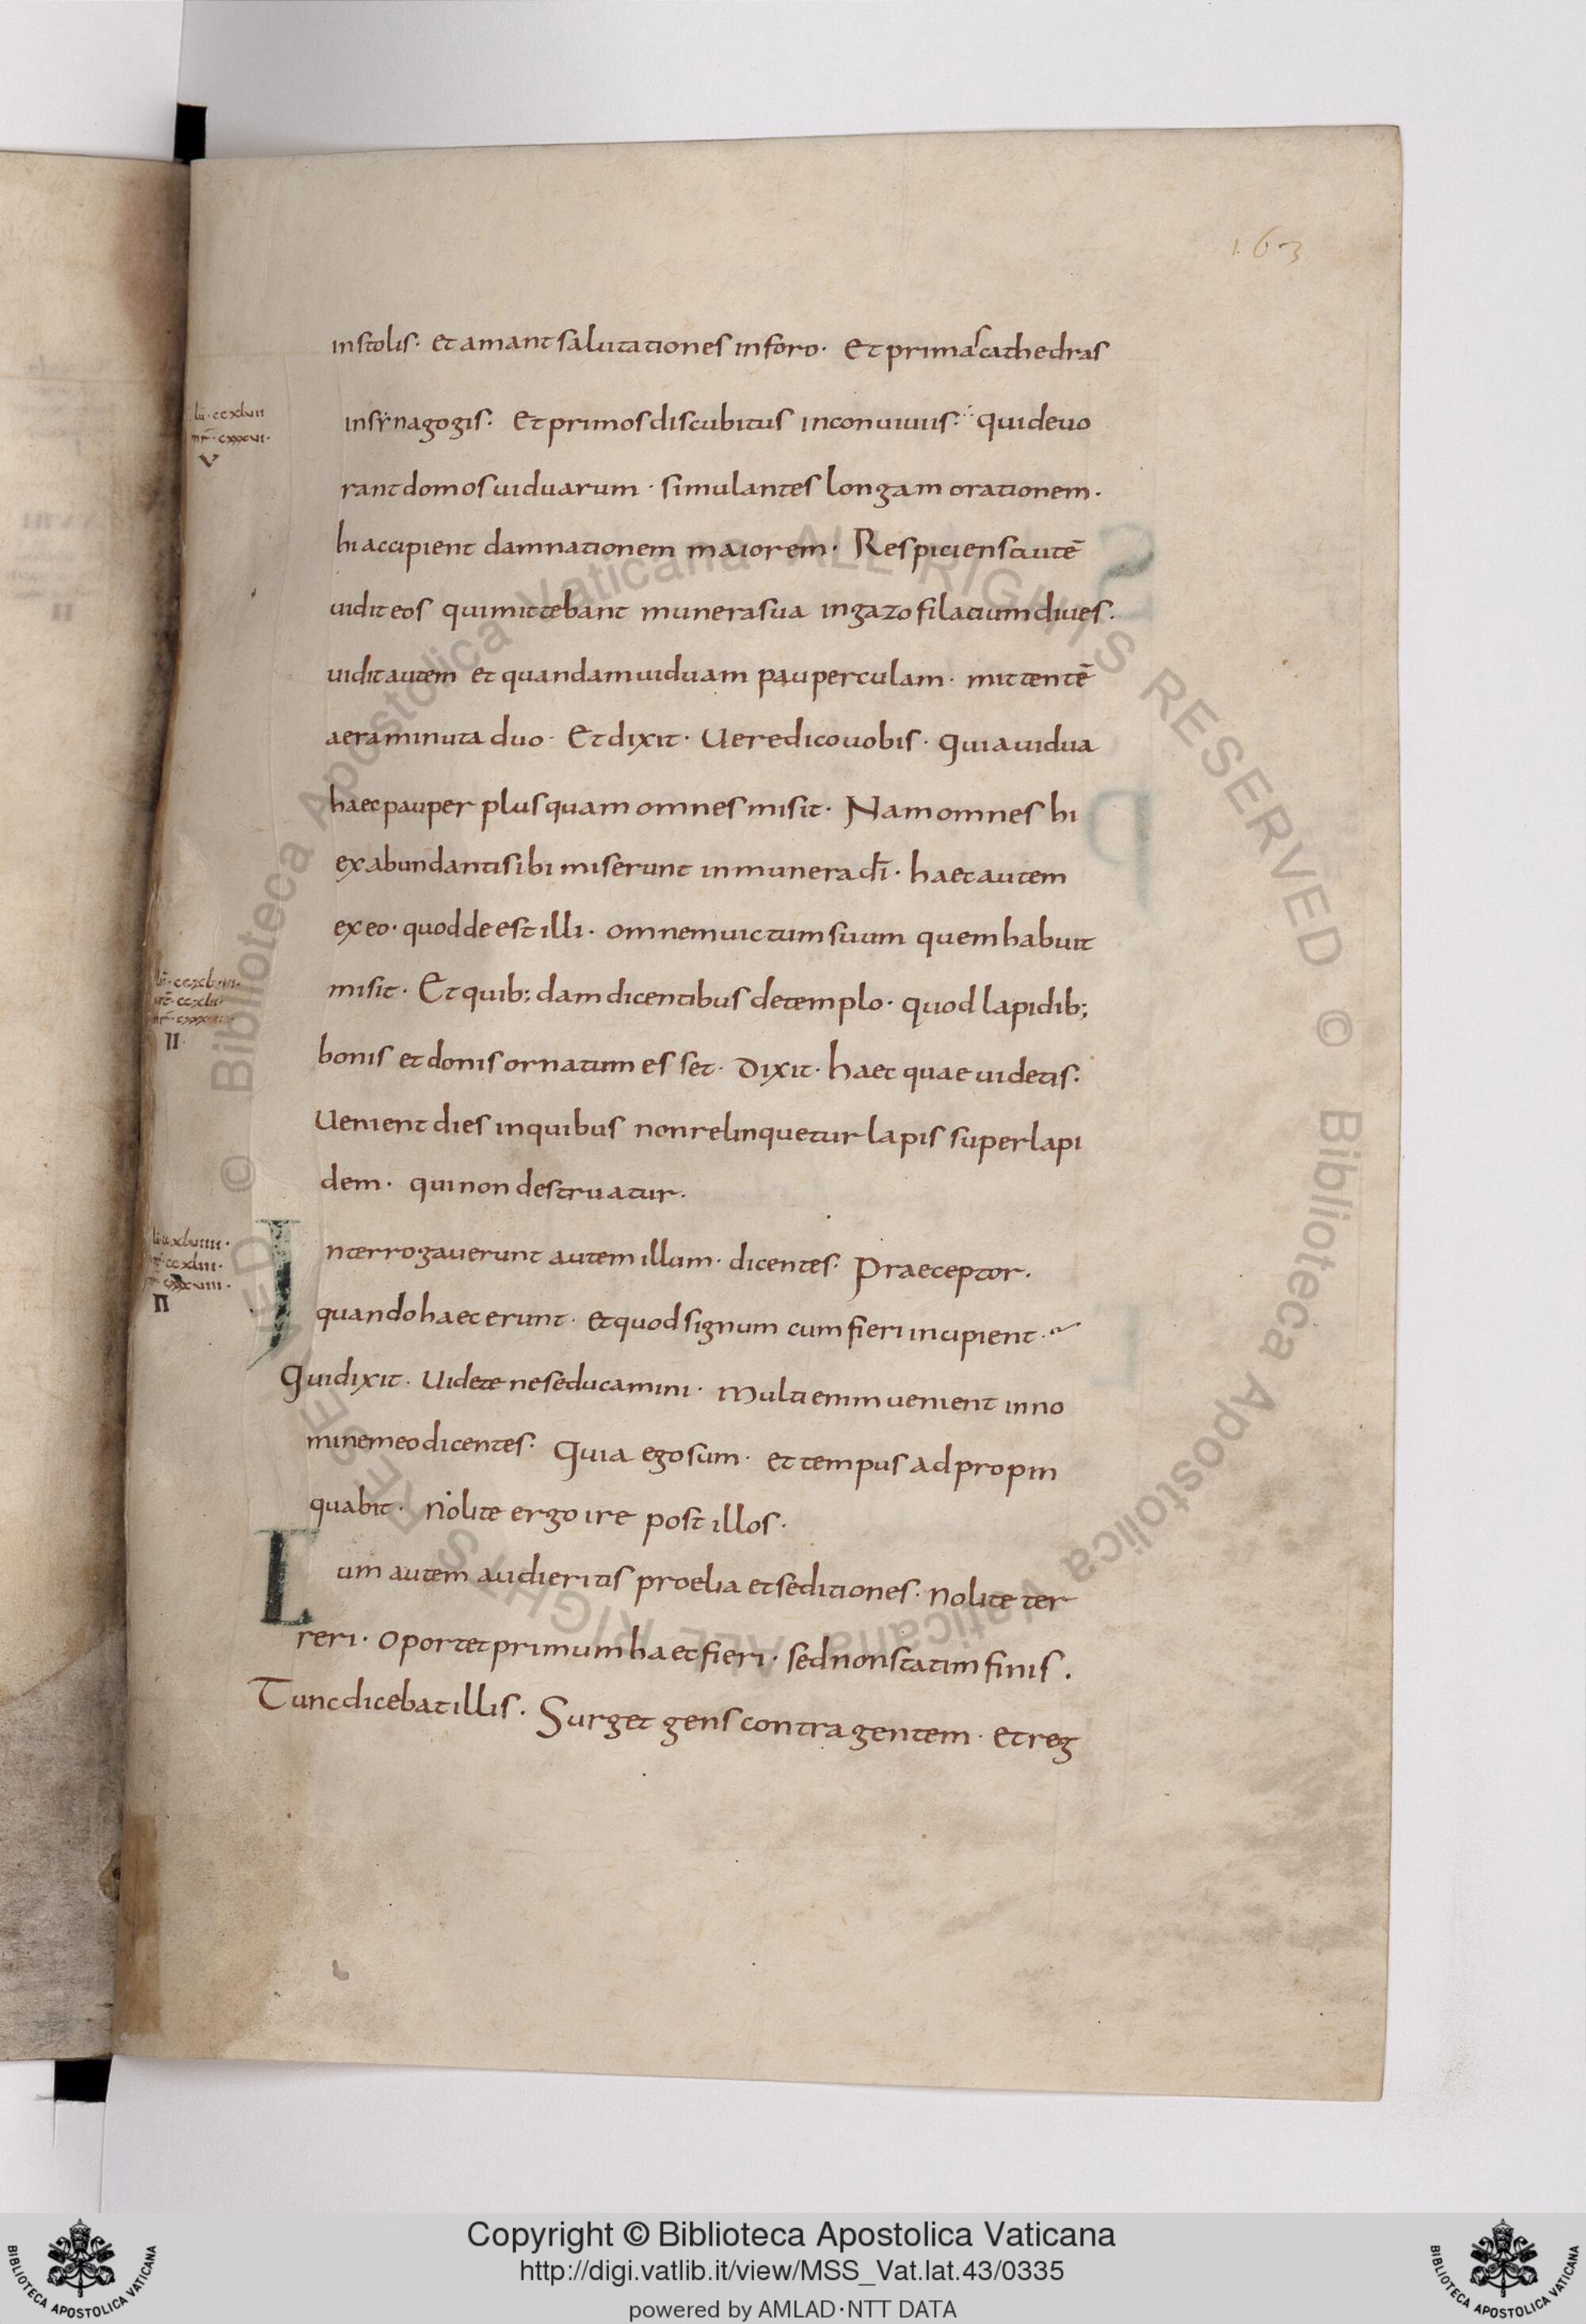 163
in stolis· et amant salutationes in foro· Et primas cathedras
lu· ccxlvii
mr· cxxxvi·
V
in synagogis· Et primos discubitus in conuiuiis· qui deuo
rant domos uiduarum· simulantes longam orationem·
hi accipient damnationem maiorem· Respiciens autē
uidit eos qui mittebant munera sua in gazofilatium diues·
uidit autem et quandam uiduam pauperculam· mittentē
aera minuta duo· Et dixit· Uere dico uobis· quia uidua
haec pauper plus quam omnes misit· Nam omnes hi
ex abundanti sibi miserunt in munera dī· haec autem
ex eo· quod deest illi· omnem uictum suum quem habuit
misit· Et quib; dam dicentibus de templo· quod lapidib;
II
bonis et donis ornatum esset· Dixit· haec quae uidetis·
Uenient dies in quibus non relinquetur lapis super lapi
dem· qui non destruatur·
Interrogauerunt autem illum· dicentes· Praeceptor·
II
quando haec erunt· et quod signum cum fieri incipient·
Qui dixit· Uidete ne seducamini· multi enim uenient in no
mine meo dicentes· Quia ego sum· et tempus adpropin
quabit· Nolite ergo ire post illos·
Cum autem audieritis proelia et seditiones· Nolite ter
reri· Oportet primum haec fieri· sed non statim finis·
Tunc dicebat illis· Surget gens contra gentem· et reg
Copyright © Biblioteca Apostolica Vaticana
http://digi.vatlib.it/view/MSS_Vat.lat.43/0335
powered by AMLAD·NTT DATA
BIBLIOTECA APOSTOLICA VATICANA
BIBLIOTECA APOSTOLICA VATICANA
© Biblioteca Apostolica Vaticana ALL RIGHTS RESERVED © Biblioteca Apostolica Vaticana ALL RIGHTS RESERVED